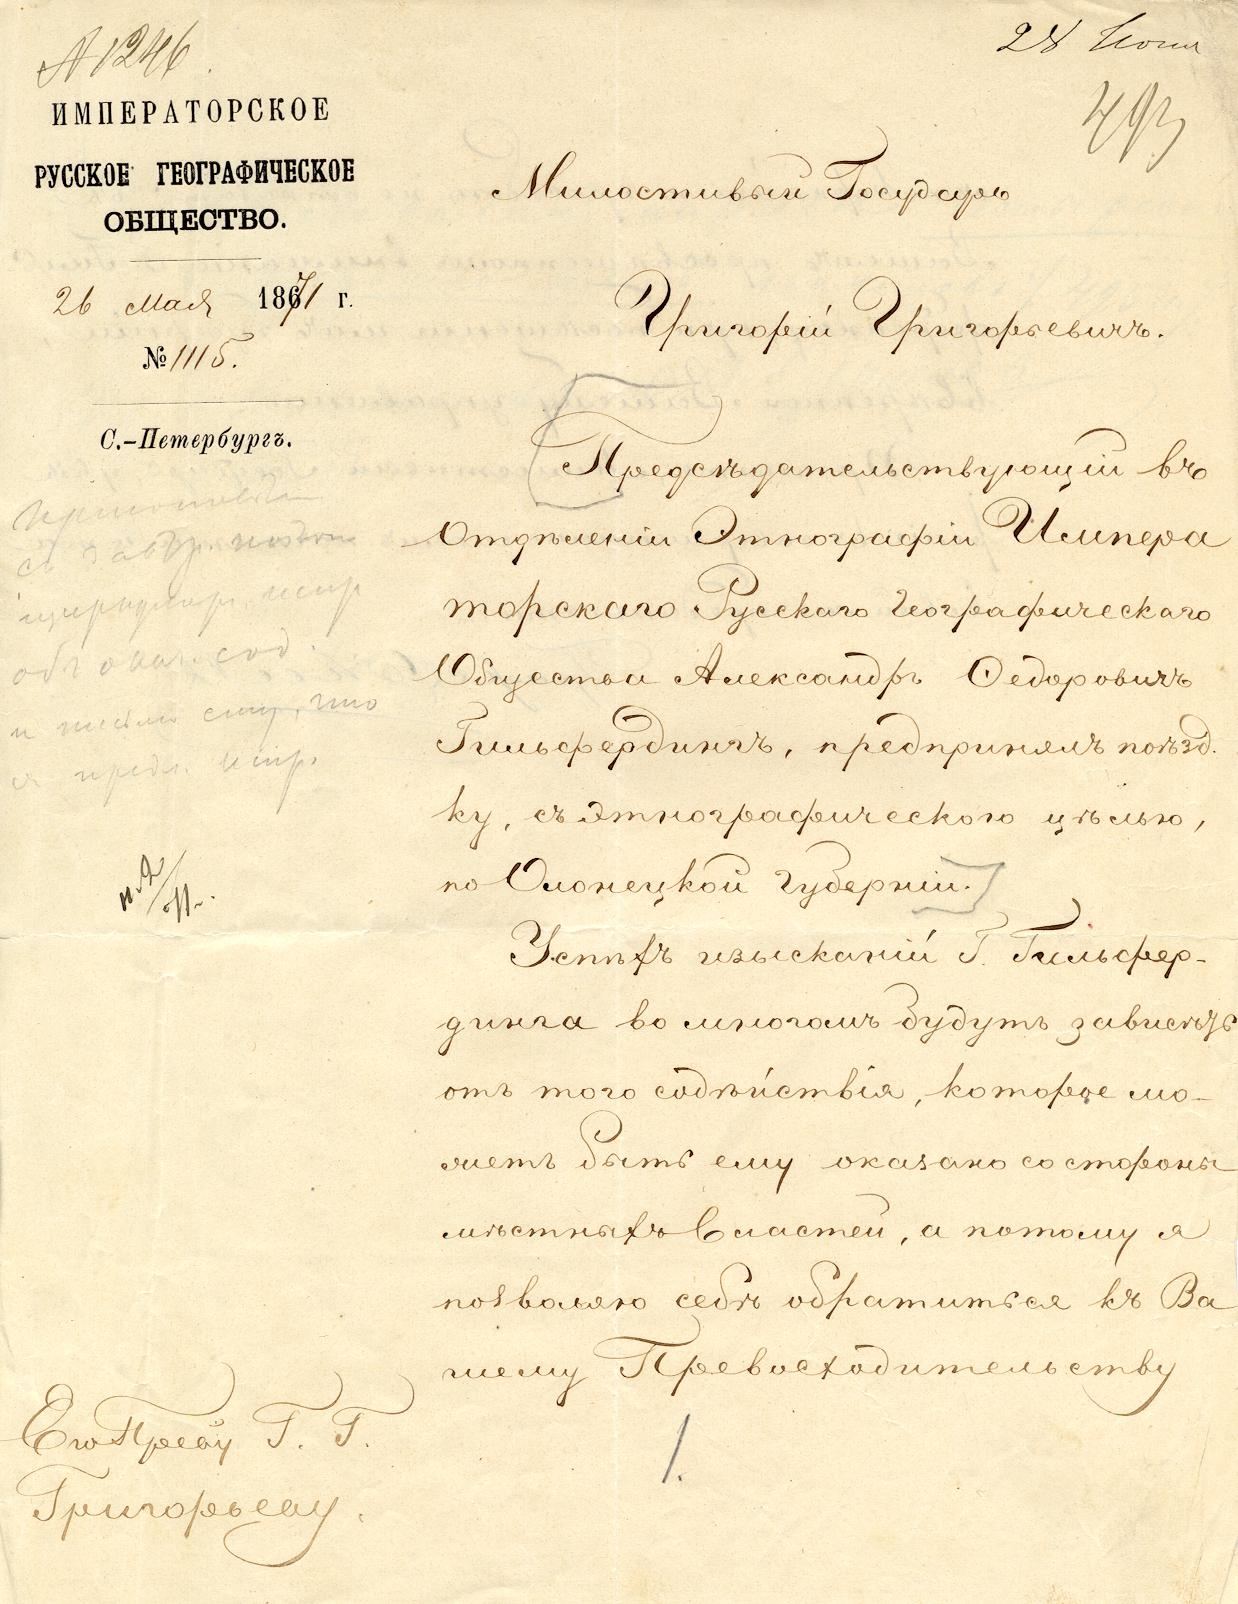 1246
ИМПЕРАТОРСКОЕ
РУССКОЕ ГЕОГРАФИЧЕСКОЕ
ОБЩЕСТВО.
26 мая 1871 г.
№ 1115.
С.-Петербургъ.
28 Июня
493
Милостивый Государь
Григорій Григорьевичъ.
Предсѣдательствующій въ
Отдѣленіи Этнографіи Импера
торскаго Русскаго Географическаго
Общества Александръ Ѳедоровичъ
Гильфердингъ, предпринялъ поѣзд-
ку, съ этнографическою цѣлью,
по Олонецкой Губерніи.
Успѣхъ изысканій Г. Гильфер-
динга во многомъ будутъ зависѣть
отъ того содѣйствія, которое мо-
жетъ быть ему оказано со стороны
мѣстныхъ властей, а потому я
позволяю себѣ обратиться къ Ва
шему Превосходительству
1.
Его Прев-ву Г. Г.
Григорьеву.